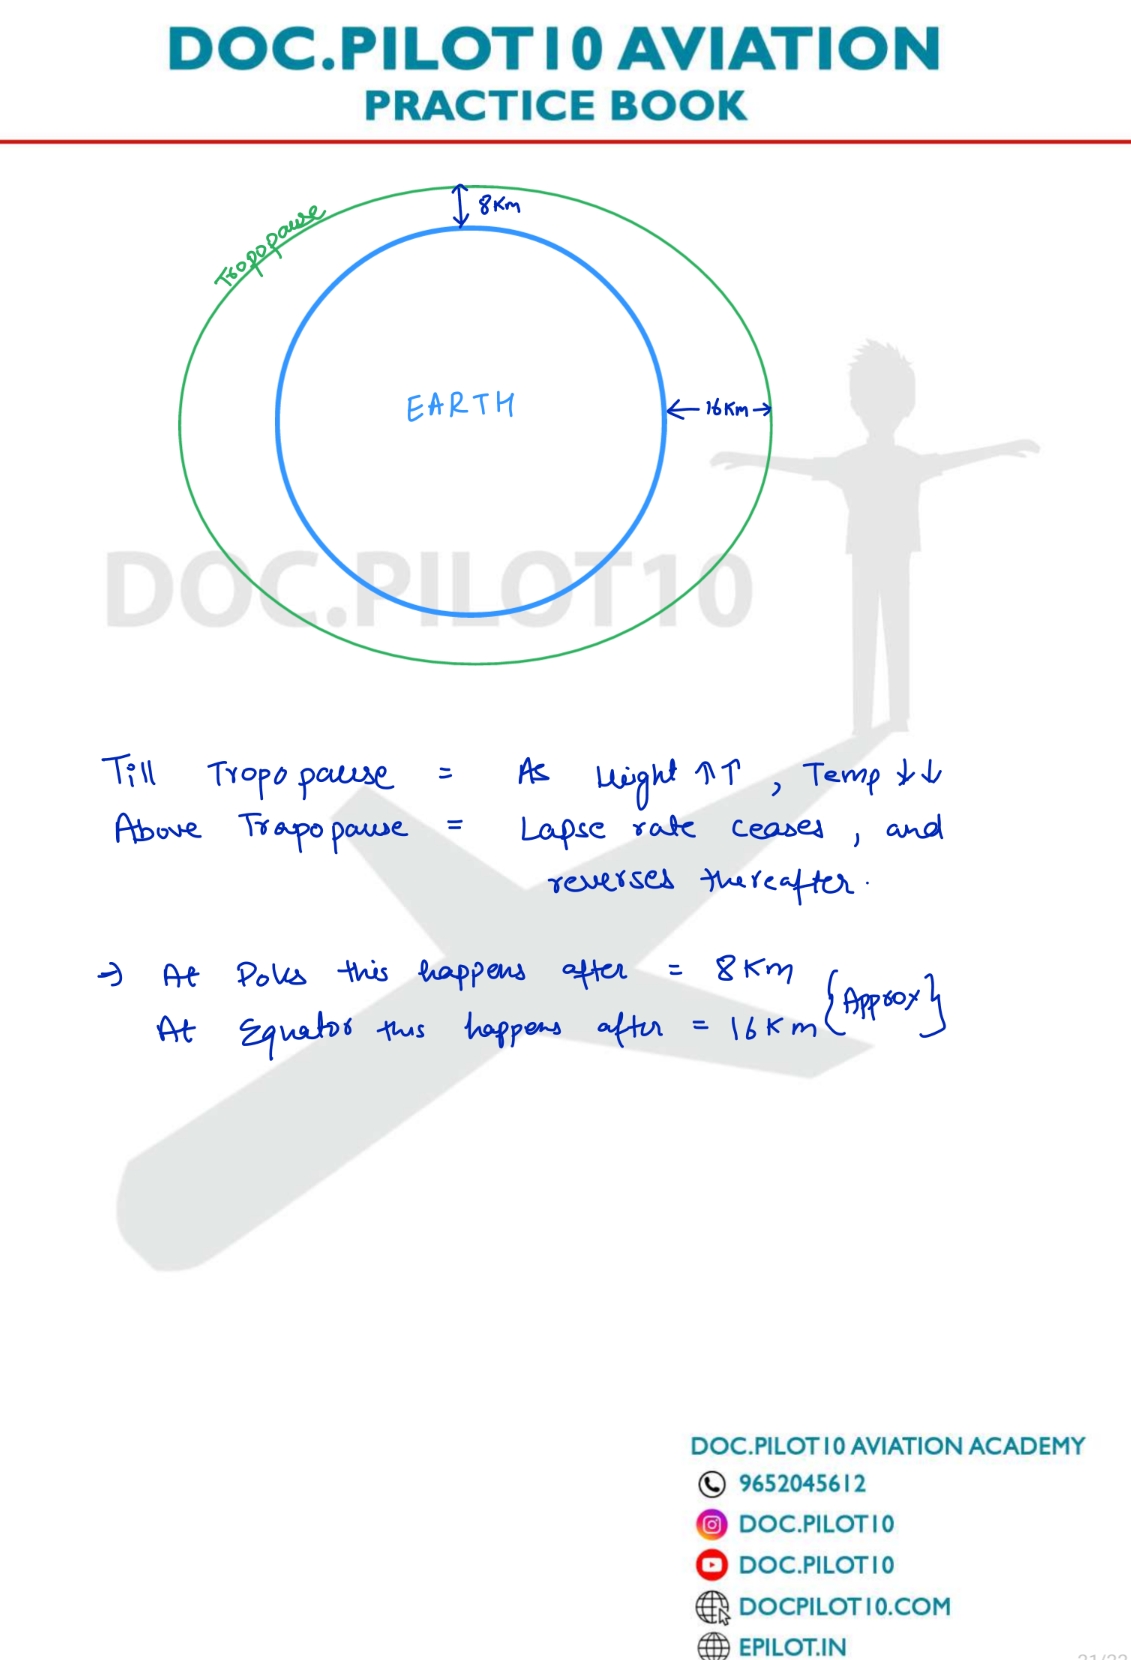 DOC.PILOT10 AVIATION
PRACTICE BOOK
8Km
Tropopause
EARTH
16Km
DOC.PILOT10
Till Tropopause = As Height ↑↑, Temp ↓↓
Above Tropopause = Lapse rate ceases, and
reverses thereafter.
→ At Poles this happens after = 8Km
{Approx}
At Equator this happens after = 16Km
DOC.PILOT10 AVIATION ACADEMY
9652045612
DOC.PILOT10
DOC.PILOT10
DOCPILOT10.COM
EPILOT.IN